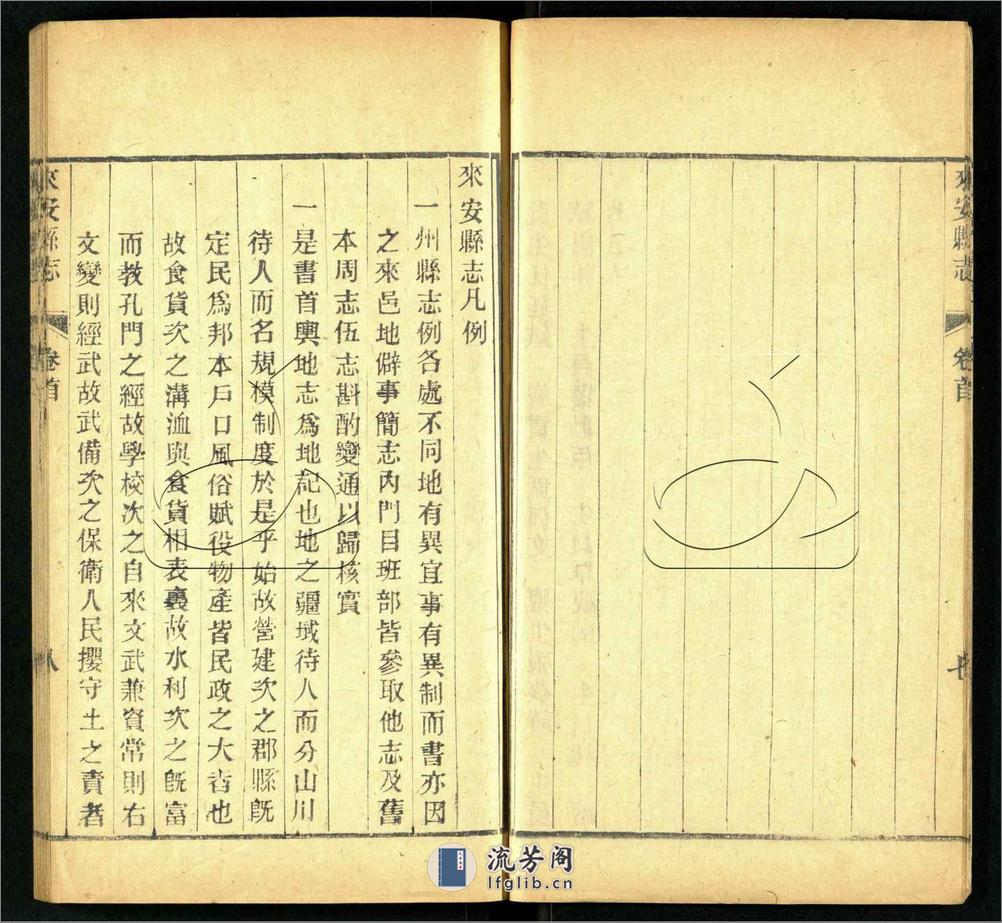 來安縣志
卷首
七
來安縣志凡例
一州縣志例各處不同地有異宜事有異制而書亦因
之來邑地僻事簡志內門目班部皆參取他志及舊
本周志伍志斟酌變通以歸核實
一是書首輿地志爲地記也地之疆域待人而分山川
待人而名規模制度於是乎始故營建次之郡縣旣
定民爲邦本戶口風俗賦役物產皆民政之大者也
故食貨次之溝洫與食貨相表裏故水利次之旣富
而敎孔門之經故學校次之自來文武兼資常則右
文變則經武故武備次之保衛人民攖守土之責者
來安縣志
卷首
八
流芳阁
lfglib.cn